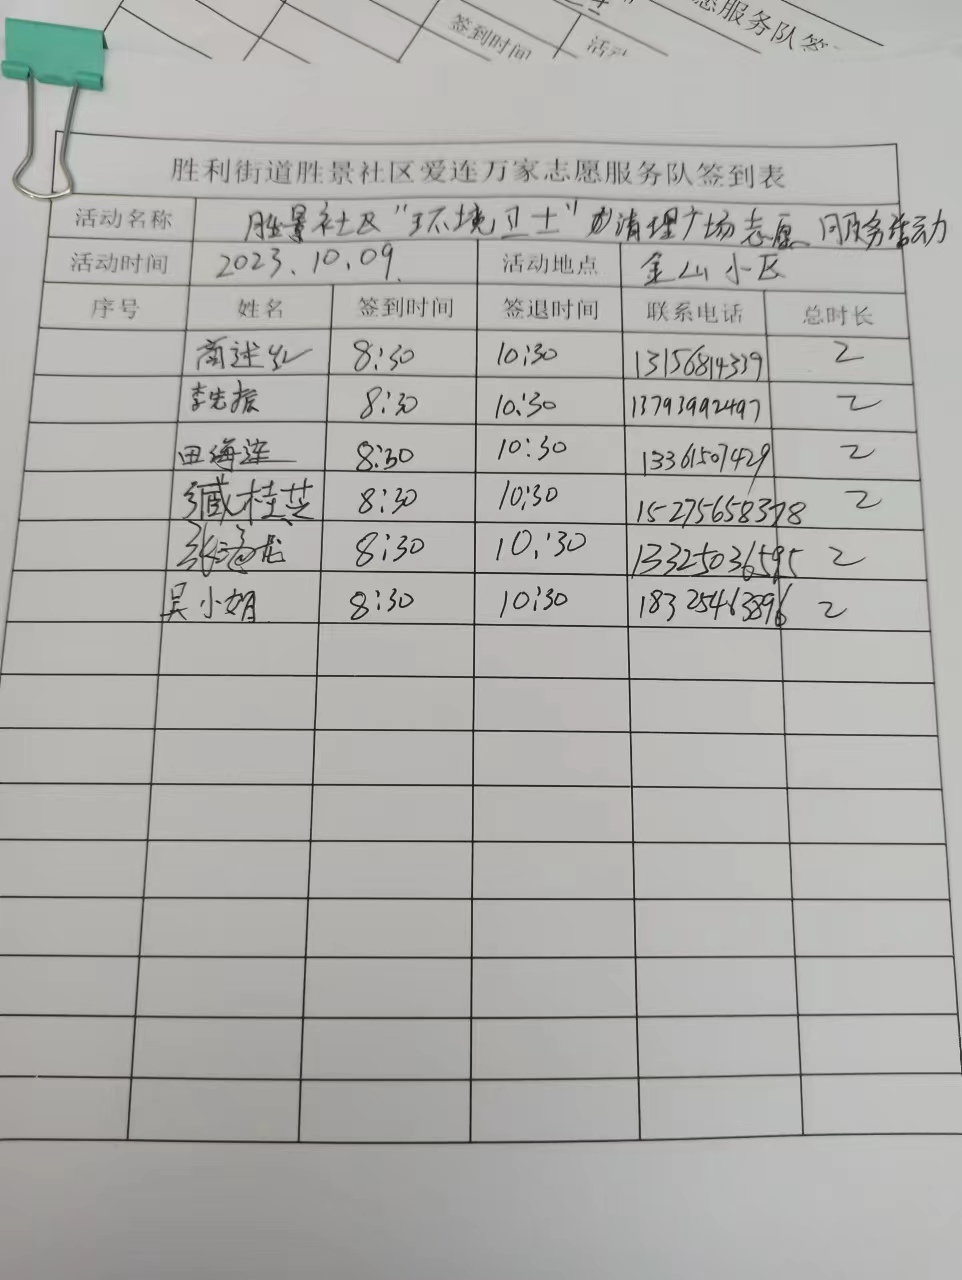 签到时间 活动
愿服务队签
胜利街道胜景社区爱连万家志愿服务队签到表
活动名称 胜景社区“环境卫士”清理广场志愿服务活动
活动时间 2023.10.09. 活动地点 金山小区
序号 姓名 签到时间 签退时间 联系电话 总时长
商述红 8:30 10:30 13156814339 2
李先振 8:30 10:30 13793992497 2
田海莲 8:30 10:30 13361507429 2
臧桂芝 8:30 10:30 15275658378 2
张海龙 8:30 10:30 13325036595 2
吴小娟 8:30 10:30 18325463896 2